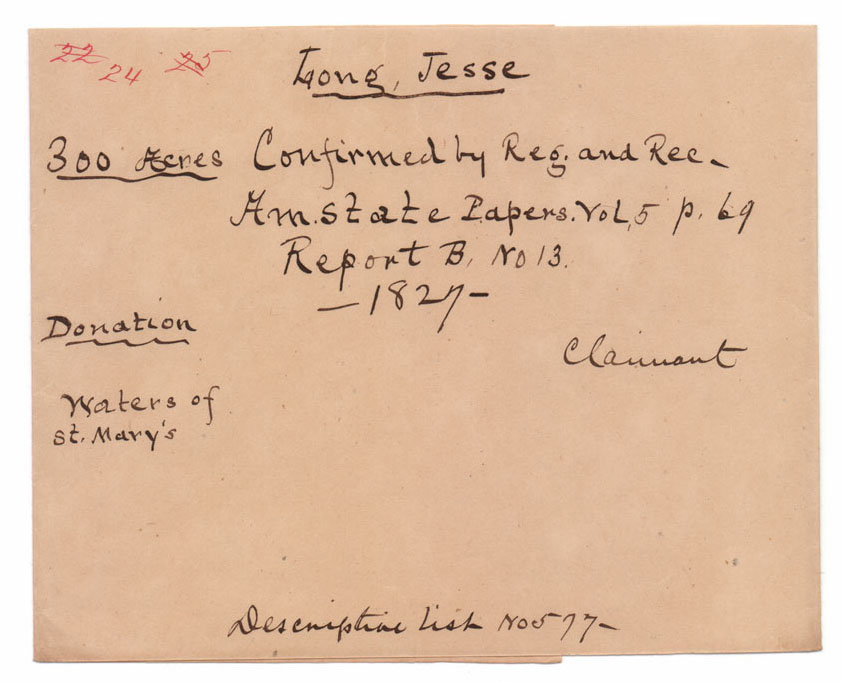 22 24 25
Long, Jesse
300 Acres Confirmed by Reg. and Rec.
Am. State Papers. Vol, 5 p. 69
Report B, No 13.
— 1827 —
Donation
Claimant
Waters of
St. Mary's
Descriptive list No 577—